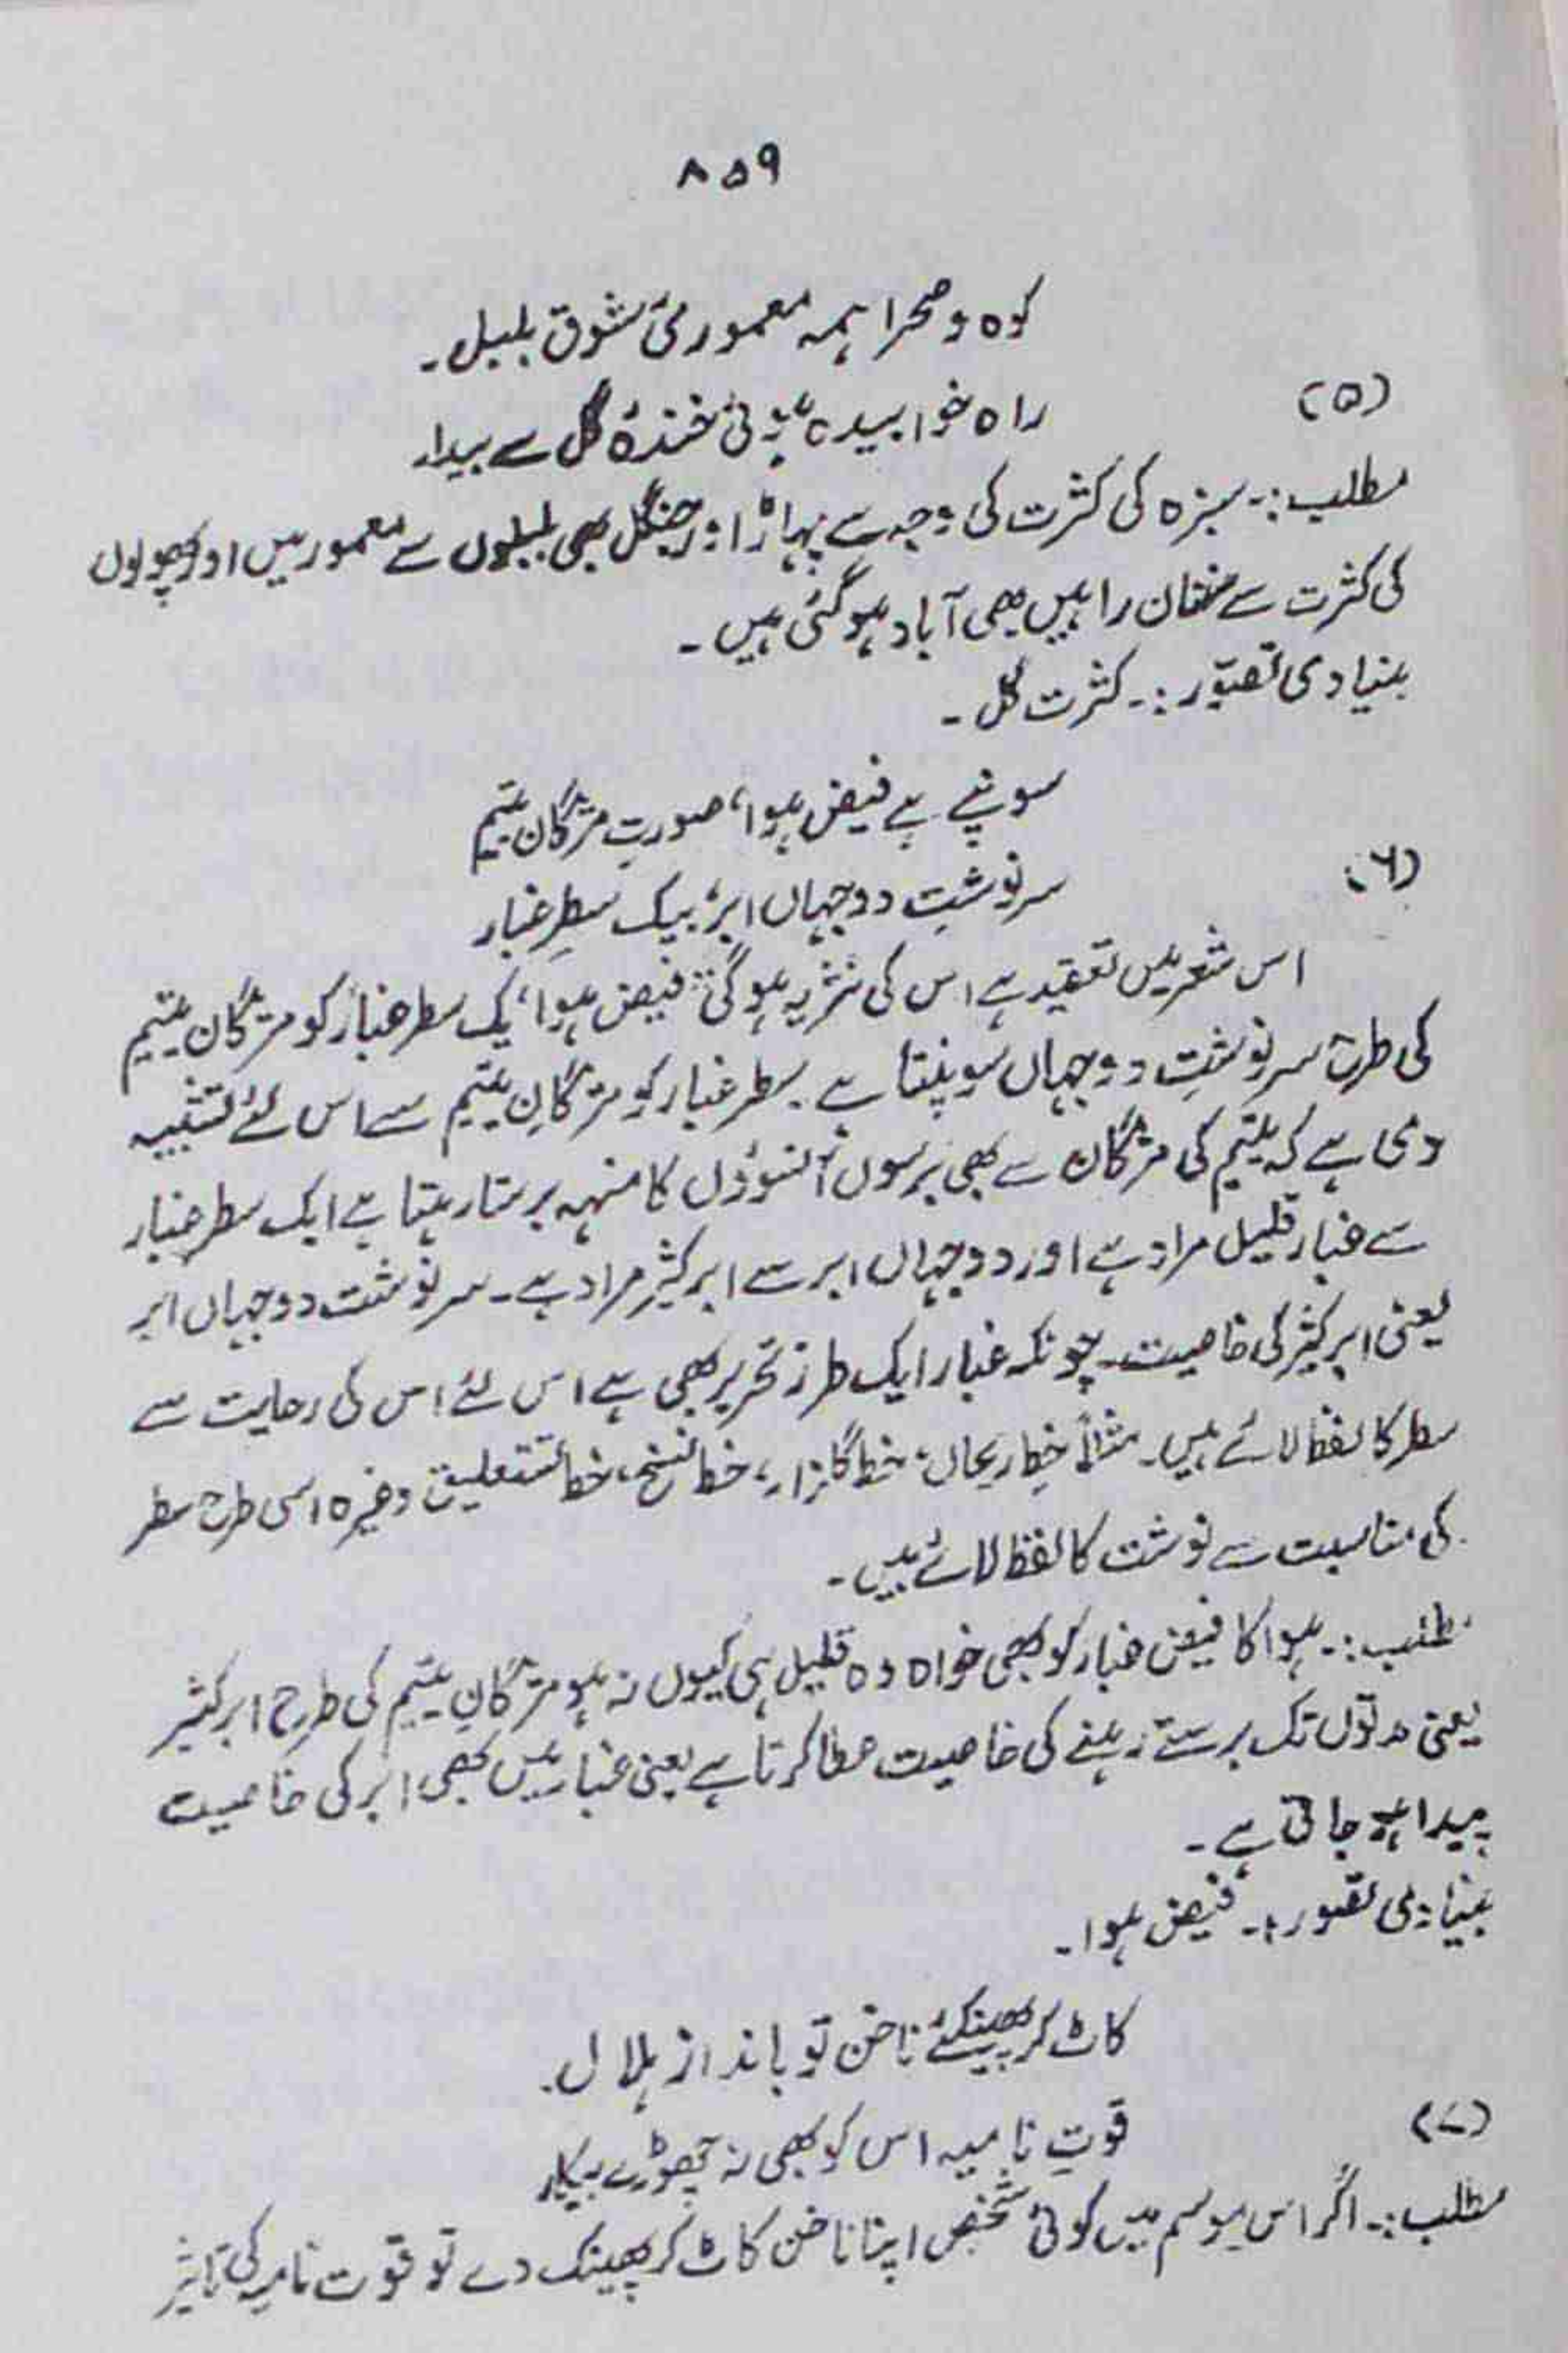 ۸۵۹
کوہ و صحرا ہمہ معموریٔ شوق بلبل۔
(۵)
راہ خوابیدہ ہوئی خندۂ گل سے بیدار
مطلب:۔ سبزہ کی کثرت کی وجہ سے پہاڑ اور جنگل بھی بلبلوں سے معمور ہیں اور پھولوں
کی کثرت سے سنسان راہیں بھی آباد ہوگئی ہیں۔
بنیادی تصوّر:۔ کثرت گل۔
سونپے ہے فیض ہوا، صورتِ مژگان یتیم
(۶)
سرنوشتِ دو جہاں ابر، بیک سطرِ غبار
اس شعر میں تعقید ہے اس کی نثر یہ ہوگی: فیض ہوا، یک سطر غبار کو مژگان یتیم
کی طرح سرنوشتِ دو جہاں سونپتا ہے۔ سطر غبار کو مژگانِ یتیم سے اس لئے تشبیہ
دی ہے کہ یتیم کی مژگان سے بھی برسوں آنسوؤں کا منہہ برستا رہتا ہے ایک سطر غبار
سے غبار قلیل مراد ہے اور دو جہاں ابر سے ابر کثیر مراد ہے۔ سرنوشت دو جہاں ابر
یعنی ابر کثیر کی خاصیت۔ چونکہ غبار ایک طرز تحریر بھی ہے اس لئے اس کی رعایت سے
سطر کا لفظ لائے ہیں۔ مثلاً خطِ ریحان، خط گلزار، خط نسخ، خط نستعلیق وغیرہ اسی طرح سطر
کی مناسبت سے نوشت کا لفظ لائے ہیں۔
مطلب:۔ ہوا کا فیض غبار کو بھی خواہ وہ قلیل ہی کیوں نہ ہو مژگانِ یتیم کی طرح ابر کثیر
یعنی مدتوں تک برستے رہنے کی خاصیت عطا کرتا ہے یعنی غبار میں بھی ابر کی خاصیت
پیدا ہو جاتی ہے۔
بنیادی تصور:۔ فیض ہوا۔
کاٹ کر پھینکئے ناخن تو بانداز ہلال۔
(۷)
قوتِ نامیہ اس کو بھی نہ چھوڑے بیکار
مطلب:۔ اگر اس موسم میں کوئی شخص اپنا ناخن کاٹ کر پھینک دے تو قوت نامیہ کی تاثیر